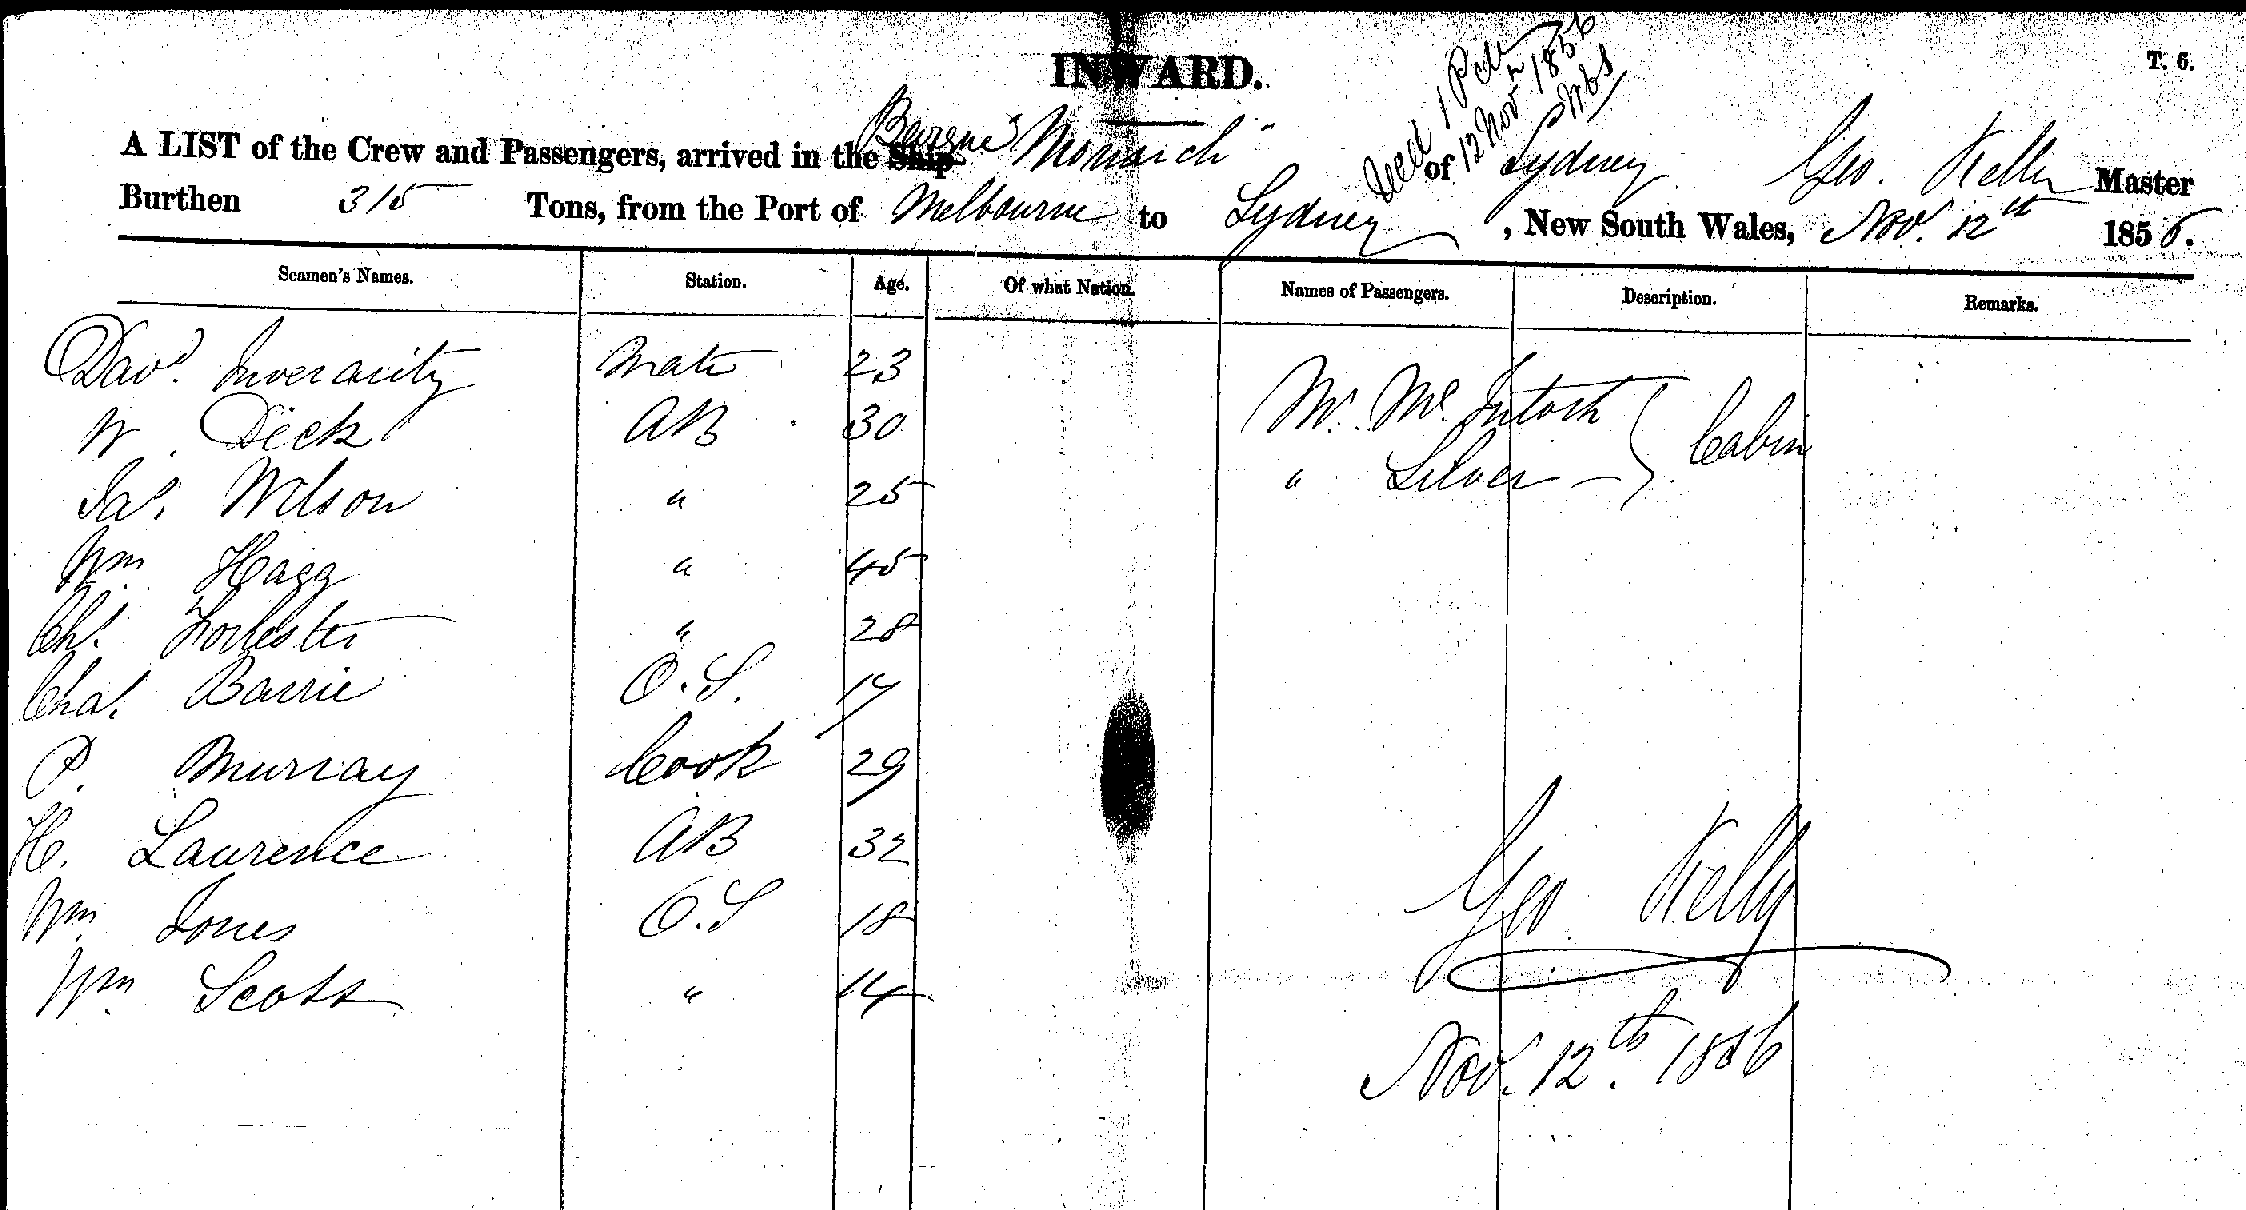 INWARD.
T. 6.
12 Nov 1856
A LIST of the Crew and Passengers, arrived in the Ship Barque "Monarch" of Sydney Geo. Kelly Master
Burthen 315 Tons, from the Port of Melbourne to Sydney, New South Wales, Nov. 12th 1856.
Seamen's Names. Station. Age. Of what Nation. Names of Passengers. Description. Remarks.
Davd. Inverarity Mate 23
Mr. Mc.Intosh Cabin
W. Dick AB 30
" Silver
Jas. Wilson " 25
Wm Hagg " 45
Chs. Forrester " 28
Chas. Barrie O.S. 17
P. Murray Cook 29
H. Lawrence AB 32
Wm Jones O.S 18
Geo Kelly
Wm. Scott " 14
Nov. 12th. 1856